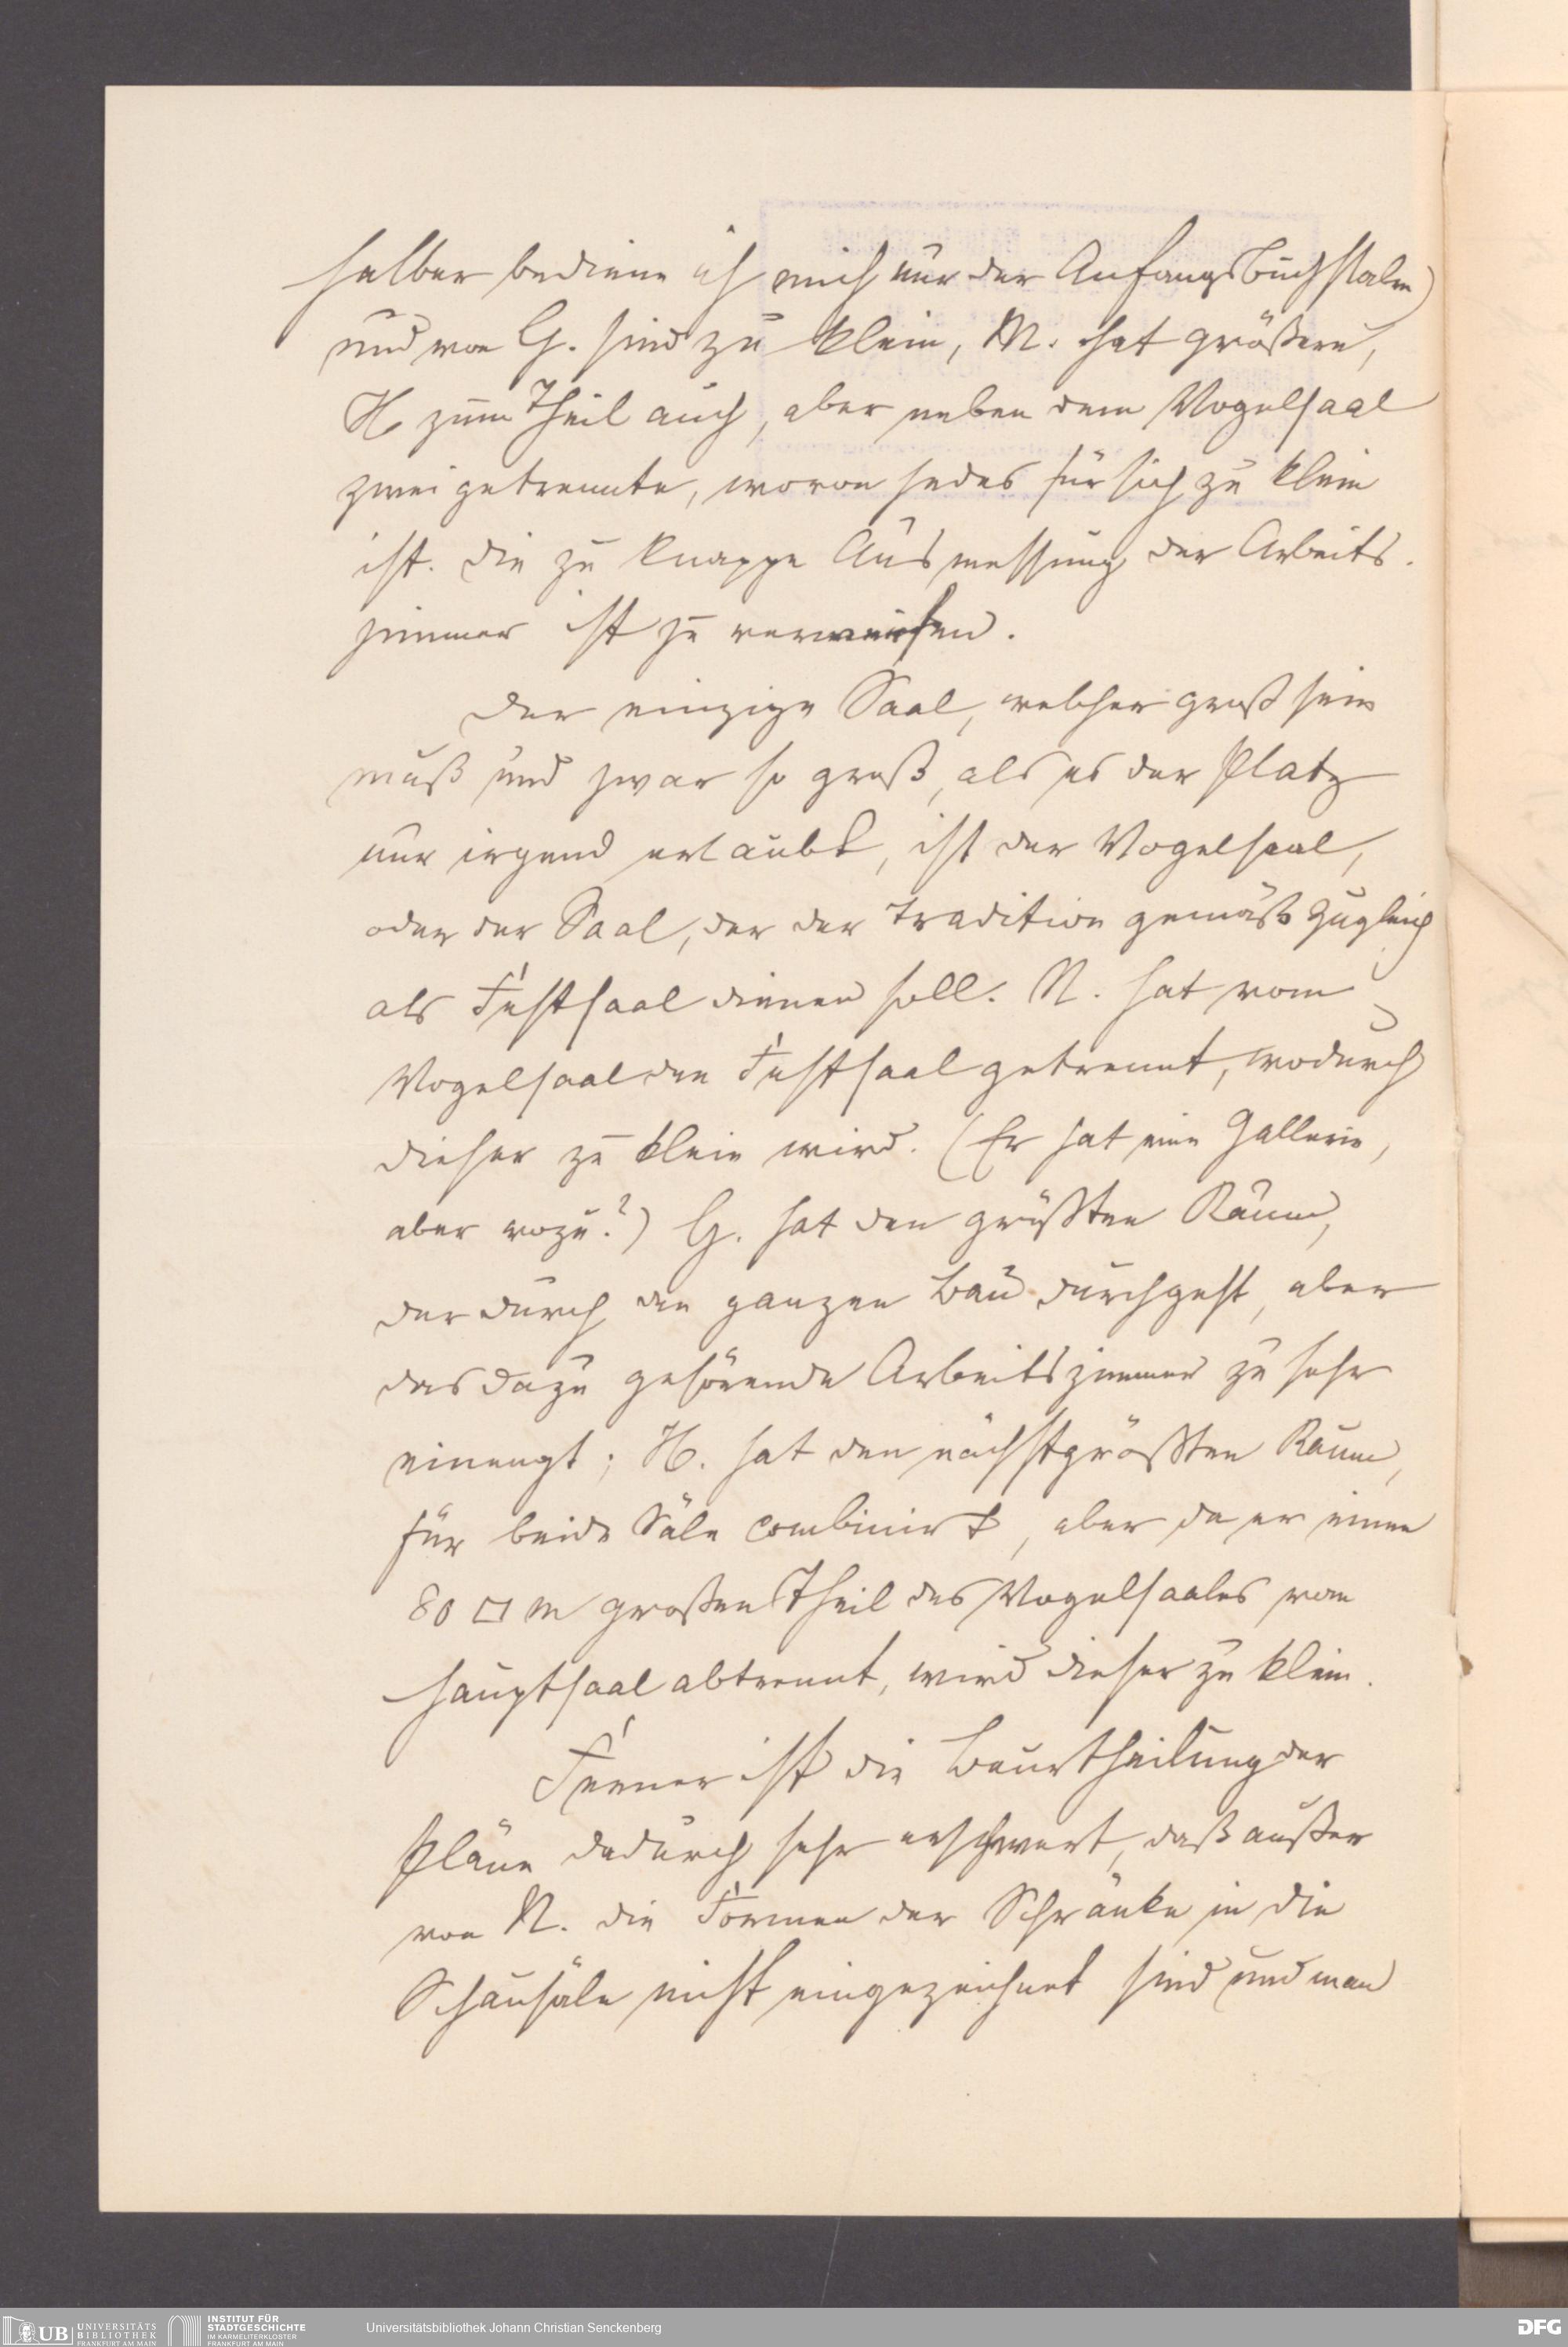 halber bediene ich mich nur der Anfangsbuchstaben)
und von G. sind zu klein, M. hat größere,
H. zum Theil auch, aber neben dem Vogelsaal
zwei getrennte, wovon jedes für sich zu klein
ist. Die zu knappe Ausmessung der Arbeits-
zimmer ist zu verwerfen.
Der einzige Saal, welcher groß sein
muß und zwar so groß, als es der Platz
nur irgend erlaubt, ist der Vogelsaal,
oder der Saal, der der Tradition gemäß zugleich
als Festsaal dienen soll. N. hat vom
Vogelsaal den Festsaal getrennt, wodurch
dieser zu klein wird. (Er hat eine Gallerie,
aber wozu?) G. hat den größten Raum,
der durch den ganzen Bau durchgeht, aber
das dazu gehörende Arbeitszimmer zu sehr
einengt; H. hat den nächstgrößten Raum,
für beide Säle combinirt, aber da er einen
80 □ m großen Theil des Vogelsaales vom
Hauptsaal abtrennt, wird dieser zu klein.
Ferner ist die Beurtheilung der
Pläne dadurch sehr erschwert, daß außer
von N. die Formen der Schränke in die
Schausäle nicht eingezeichnet sind und man
UB UNIVERSITÄTS
BIBLIOTHEK
FRANKFURT AM MAIN
INSTITUT FÜR
STADTGESCHICHTE
IM KARMELITERKLOSTER
FRANKFURT AM MAIN
Universitätsbibliothek Johann Christian Senckenberg
DFG